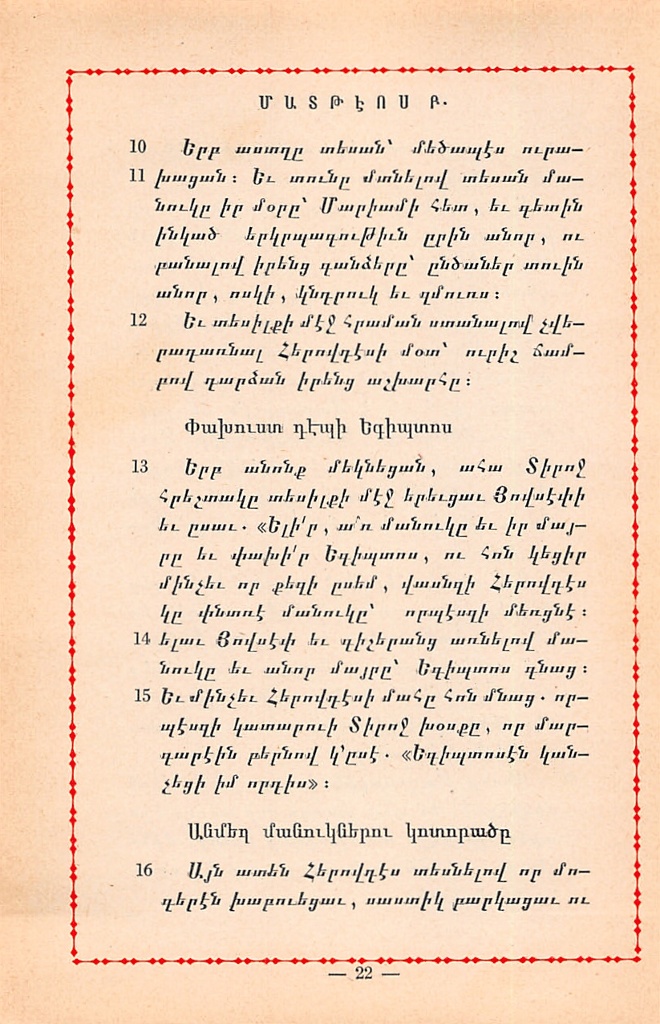 ՄԱՏԹԷՈՍ Բ.
10 Երբ աստղը տեսան՝ մեծապէս ուրա—
11 խացան։ Եւ տունը մտնելով տեսան մա—
նուկը իր մօրը՝ Մարիամի հետ, եւ գետին
ինկած երկրպագութիւն ըրին անոր, ու
բանալով իրենց գանձերը՝ ընծաներ տուին
անոր, ոսկի, կնդրուկ եւ զմուռս։
12 Եւ տեսիլքի մէջ հրաման ստանալով չվե—
րադառնալ Հերովդէսի մօտ՝ ուրիշ ճամ—
բով դարձան իրենց աշխարհը։
Փախուստ դէպի Եգիպտոս
13 Երբ անոնք մեկնեցան, ահա Տիրոջ
հրեշտակը տեսիլքի մէջ երեւցաւ Յովսէփի
եւ ըսաւ. «Ելի՛ր, ա՛ռ մանուկը եւ իր մայ—
րը եւ փախի՛ր Եգիպտոս, ու հոն կեցիր
մինչեւ որ քեզի ըսեմ, վասնզի Հերովդէս
կը փնտռէ մանուկը՝ որպէսզի մեռցնէ։
14 Ելաւ Յովսէփ եւ գիշերանց առնելով մա—
նուկը եւ անոր մայրը՝ Եգիպտոս գնաց։
15 Եւ մինչեւ Հերովդէսի մահը հոն մնաց. որ—
պէսզի կատարուի Տիրոջ խօսքը, որ մար—
գարէին բերնով կ՚ըսէ. «Եգիպտոսէն կան—
չեցի իմ որդիս»։
Անմեղ մանուկներու կոտորածը
16 Այն ատեն Հերովդէս տեսնելով որ մո—
գերէն խաբուեցաւ, սաստիկ բարկացաւ ու
— 22 —